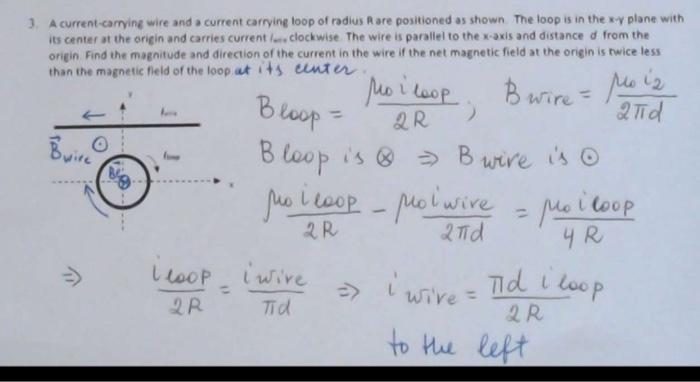 3. A current-carrying wire and a current carrying loop of radius R are positioned as shown. The loop is in the x-y plane with
its center at the origin and carries current i_loop clockwise. The wire is parallel to the x-axis and distance d from the
origin. Find the magnitude and direction of the current in the wire if the net magnetic field at the origin is twice less
than the magnetic field of the loop at its center.
B loop = μ₀ i loop / 2R ; B wire = μ₀ i₂ / 2πd
y
←
B⃗ wire ⊙
B loop is ⊗ ⇒ B wire is ⊙
⊗
x
μ₀ i loop / 2R - μ₀ i wire / 2πd = μ₀ i loop / 4R
⇒ i loop / 2R = i wire / πd ⇒ i wire = πd i loop / 2R
to the left